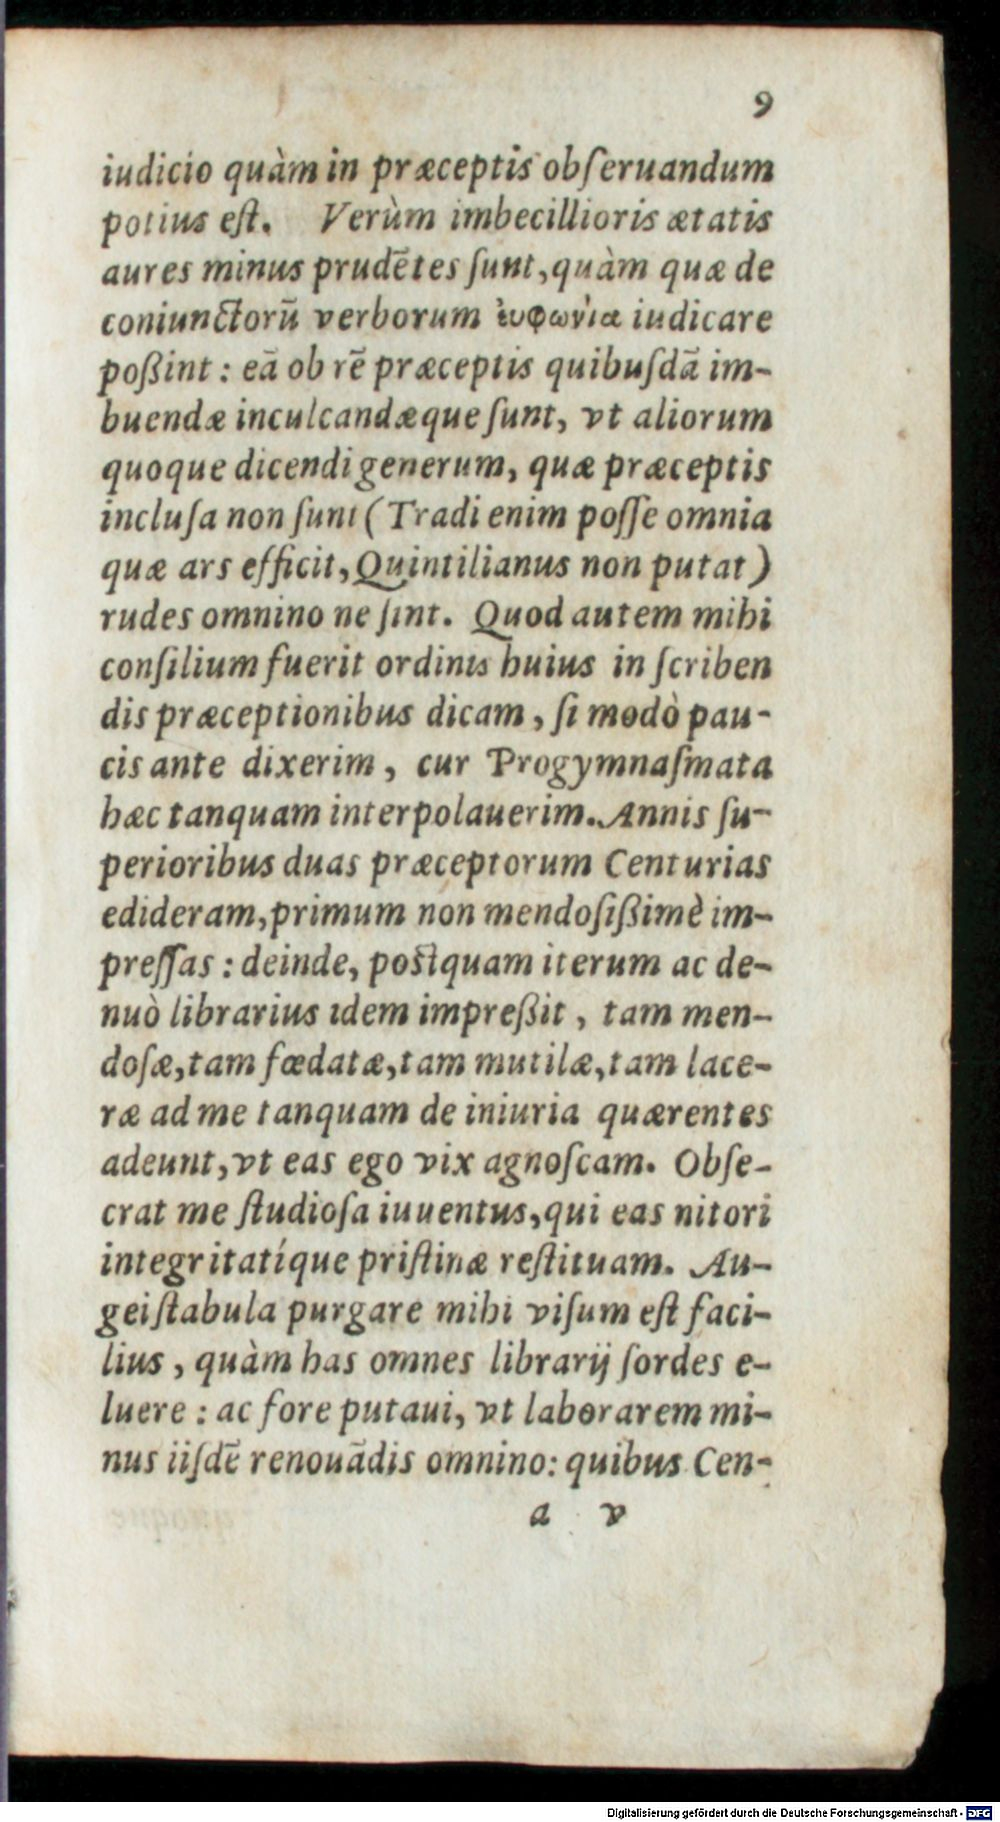 9
iudicio quàm in præceptis obſeruandum
potius eſt. Verùm imbecillioris ætatis
aures minus prudẽtes ſunt, quàm quæ de
coniunctorũ verborum ἐυφωνία iudicare
poßint : eã ob rẽ præceptis quibuſdã im-
buendæ inculcandæque ſunt, vt aliorum
quoque dicendi generum, quæ præceptis
incluſa non ſunt ( Tradi enim poſſe omnia
quæ ars efficit, Quintilianus non putat )
rudes omnino ne ſint. Quod autem mihi
conſilium fuerit ordinis huius in ſcriben
dis præceptionibus dicam , ſi modò pau-
cis ante dixerim , cur Progymnaſmata
hæc tanquam interpolauerim. Annis ſu-
perioribus duas præceptorum Centurias
edideram, primum non mendoſißimè im-
preſſas : deinde, poſtquam iterum ac de-
nuò librarius idem impreßit , tam men-
doſæ, tam fœdatæ, tam mutilæ, tam lace-
ræ ad me tanquam de iniuria quærentes
adeunt, vt eas ego vix agnoſcam. Obſe-
crat me ſtudioſa iuuentus, qui eas nitori
integritatíque priſtinæ reſtituam. Au-
gei ſtabula purgare mihi viſum eſt faci-
lius , quàm has omnes librarij ſordes e-
luere : ac fore putaui, vt laborarem mi-
nus iiſdẽ renouãdis omnino: quibus Cen-
a v
Digitalisierung gefördert durch die Deutsche Forschungsgemeinschaft - DFG